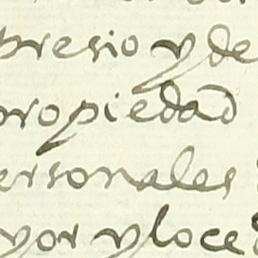 presio y de
propiedad
ersonales
yor y loce